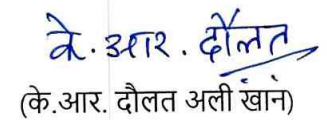 के. आर. दौलत
(के.आर. दौलत अली खान)